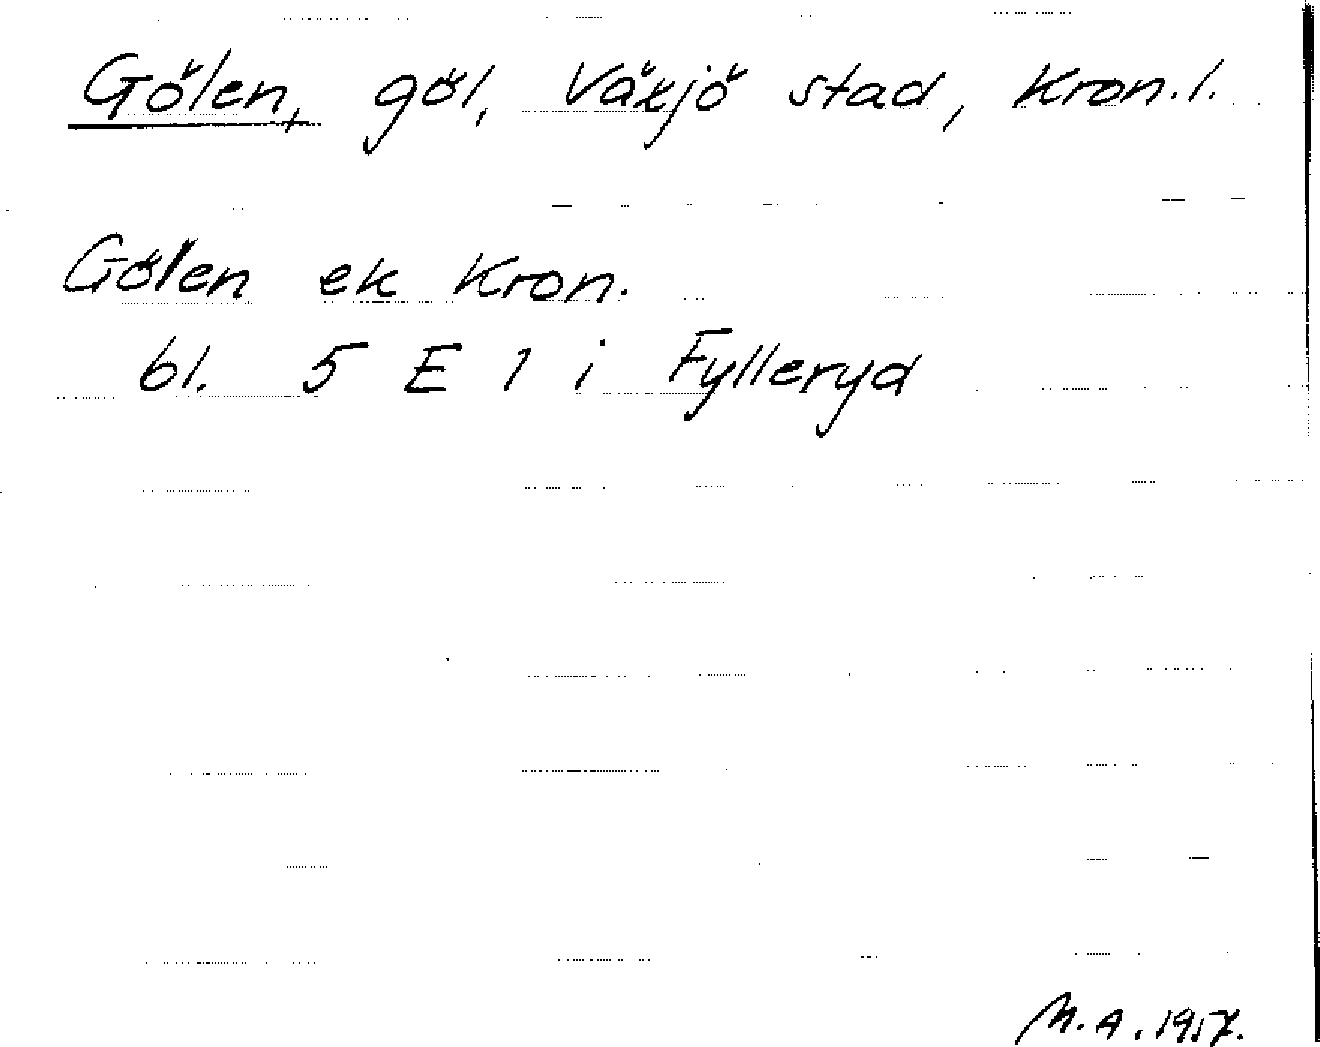 Gölen, göl, Växjö stad, Kron.l.
Gölen ek Kron.
bl. 5 E 1 i Fylleryd
M.A. 1957.